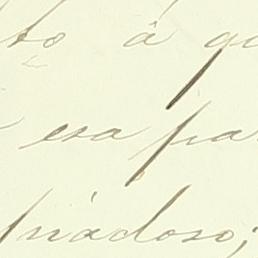 to á qu
esa par
piadoso;